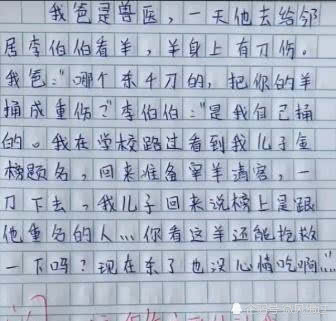 我爸是兽医，一天他去给邻
居李伯伯看羊，羊身上有刀伤。
我爸："哪个杀千刀的，把你的羊
捅成重伤？"李伯伯："是我自己捅
的。我在学校路过看到我儿子金
榜题名，回来准备宰羊请客，一
刀下去，我儿子回来说榜上是跟
他重名的人…你看这羊还能抢救
一下吗？现在杀了也没心情吃啊…"